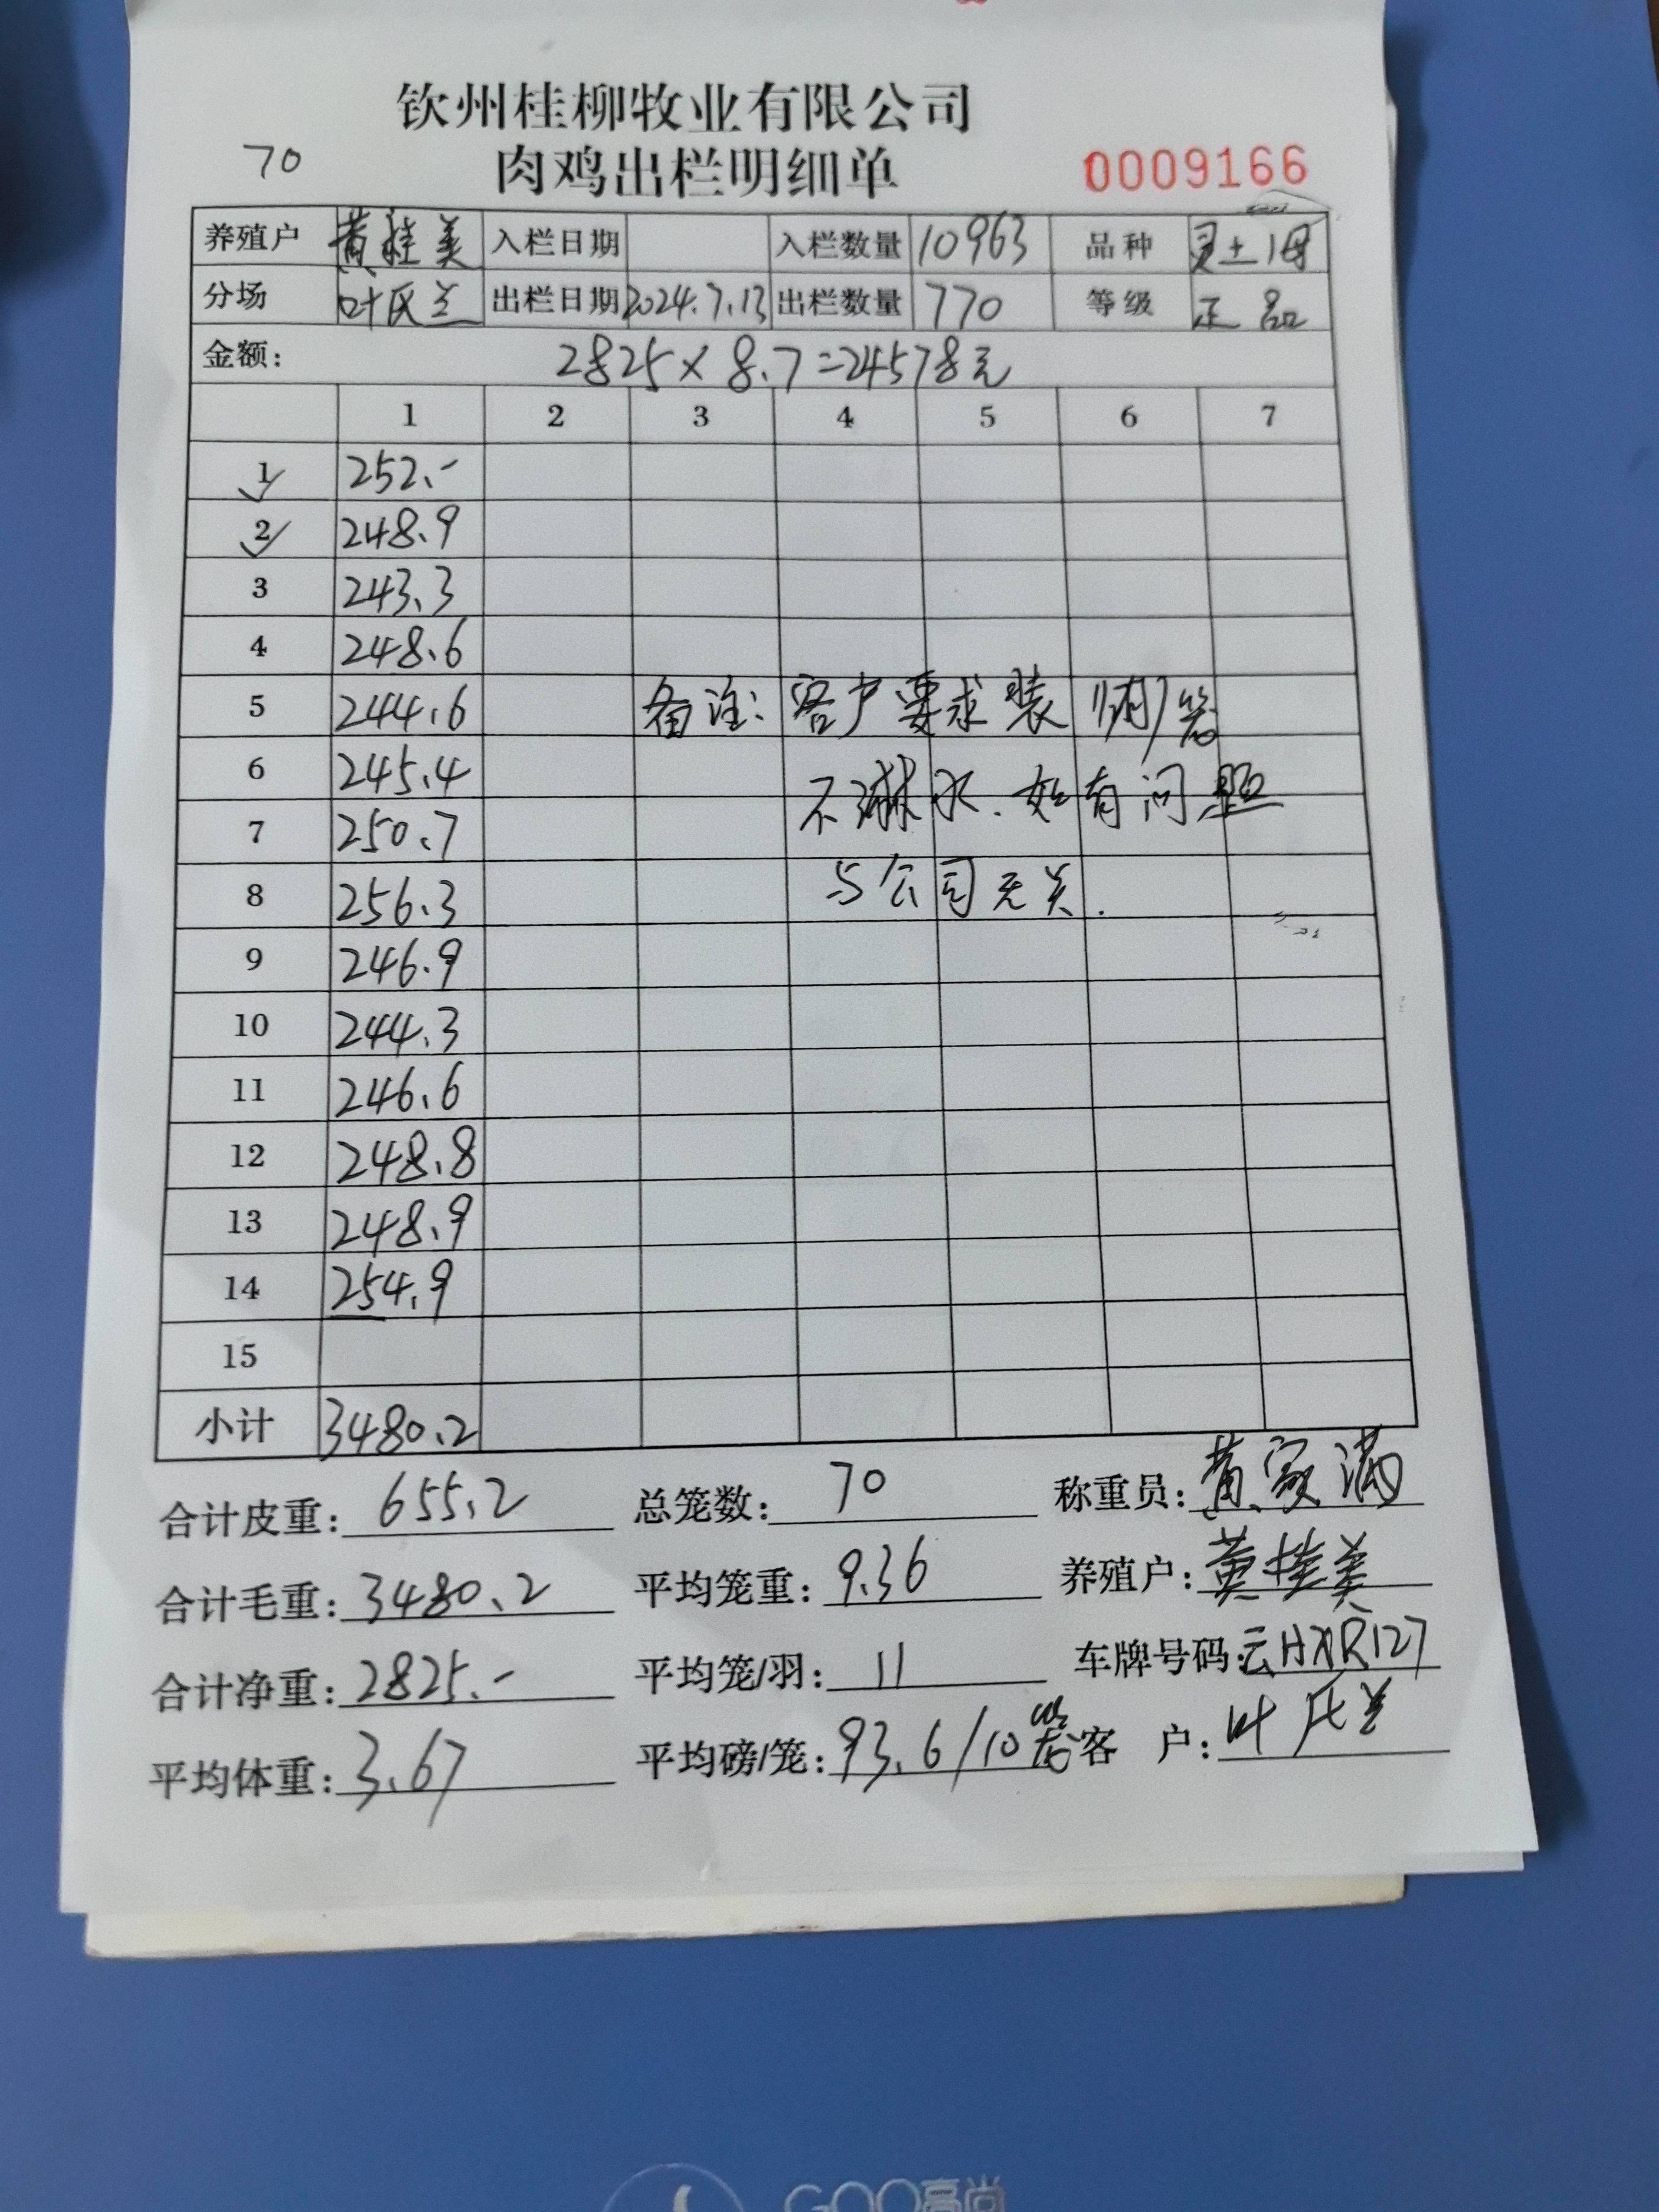 钦州桂柳牧业有限公司
70 肉鸡出栏明细单 0009166
养殖户 黄桂美 入栏日期 入栏数量 10963 品种 灵土1母
分场 叶氏兰 出栏日期 2024.7.13 出栏数量 770 等级 正品
金额: 2825×8.7=24578元
1 2 3 4 5 6 7
1 252.-
2 248.9
3 243.3
4 248.6
5 244.6 备注: 客户要求装 11只/笼
6 245.4 不淋水.如有问题
7 250.7
8 256.3 与公司无关.
9 246.9
10 244.3
11 246.6
12 248.8
13 248.9
14 254.9
15
小计 3480.2
合计皮重: 655.2 总笼数: 70 称重员: 黄家满
合计毛重: 3480.2 平均笼重: 9.36 养殖户: 黄桂美
合计净重: 2825.- 平均笼/羽: 11 车牌号码: 云HXR127
平均体重: 3.67 平均磅/笼: 93.6/10笼 客 户: 叶氏兰
GOO高尚